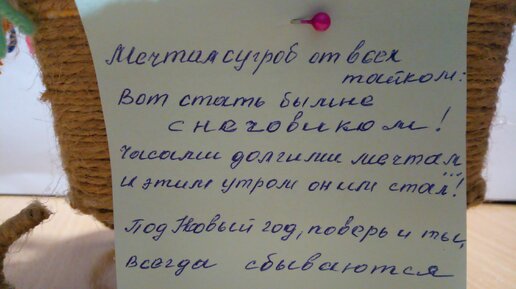 Мечтал сугроб от всех
тайком:
Вот стать бы мне
снеговиком!
Часами долгими мечтал
и этим утром он им стал...!
Под Новый год, поверь и ты,
всегда сбываются